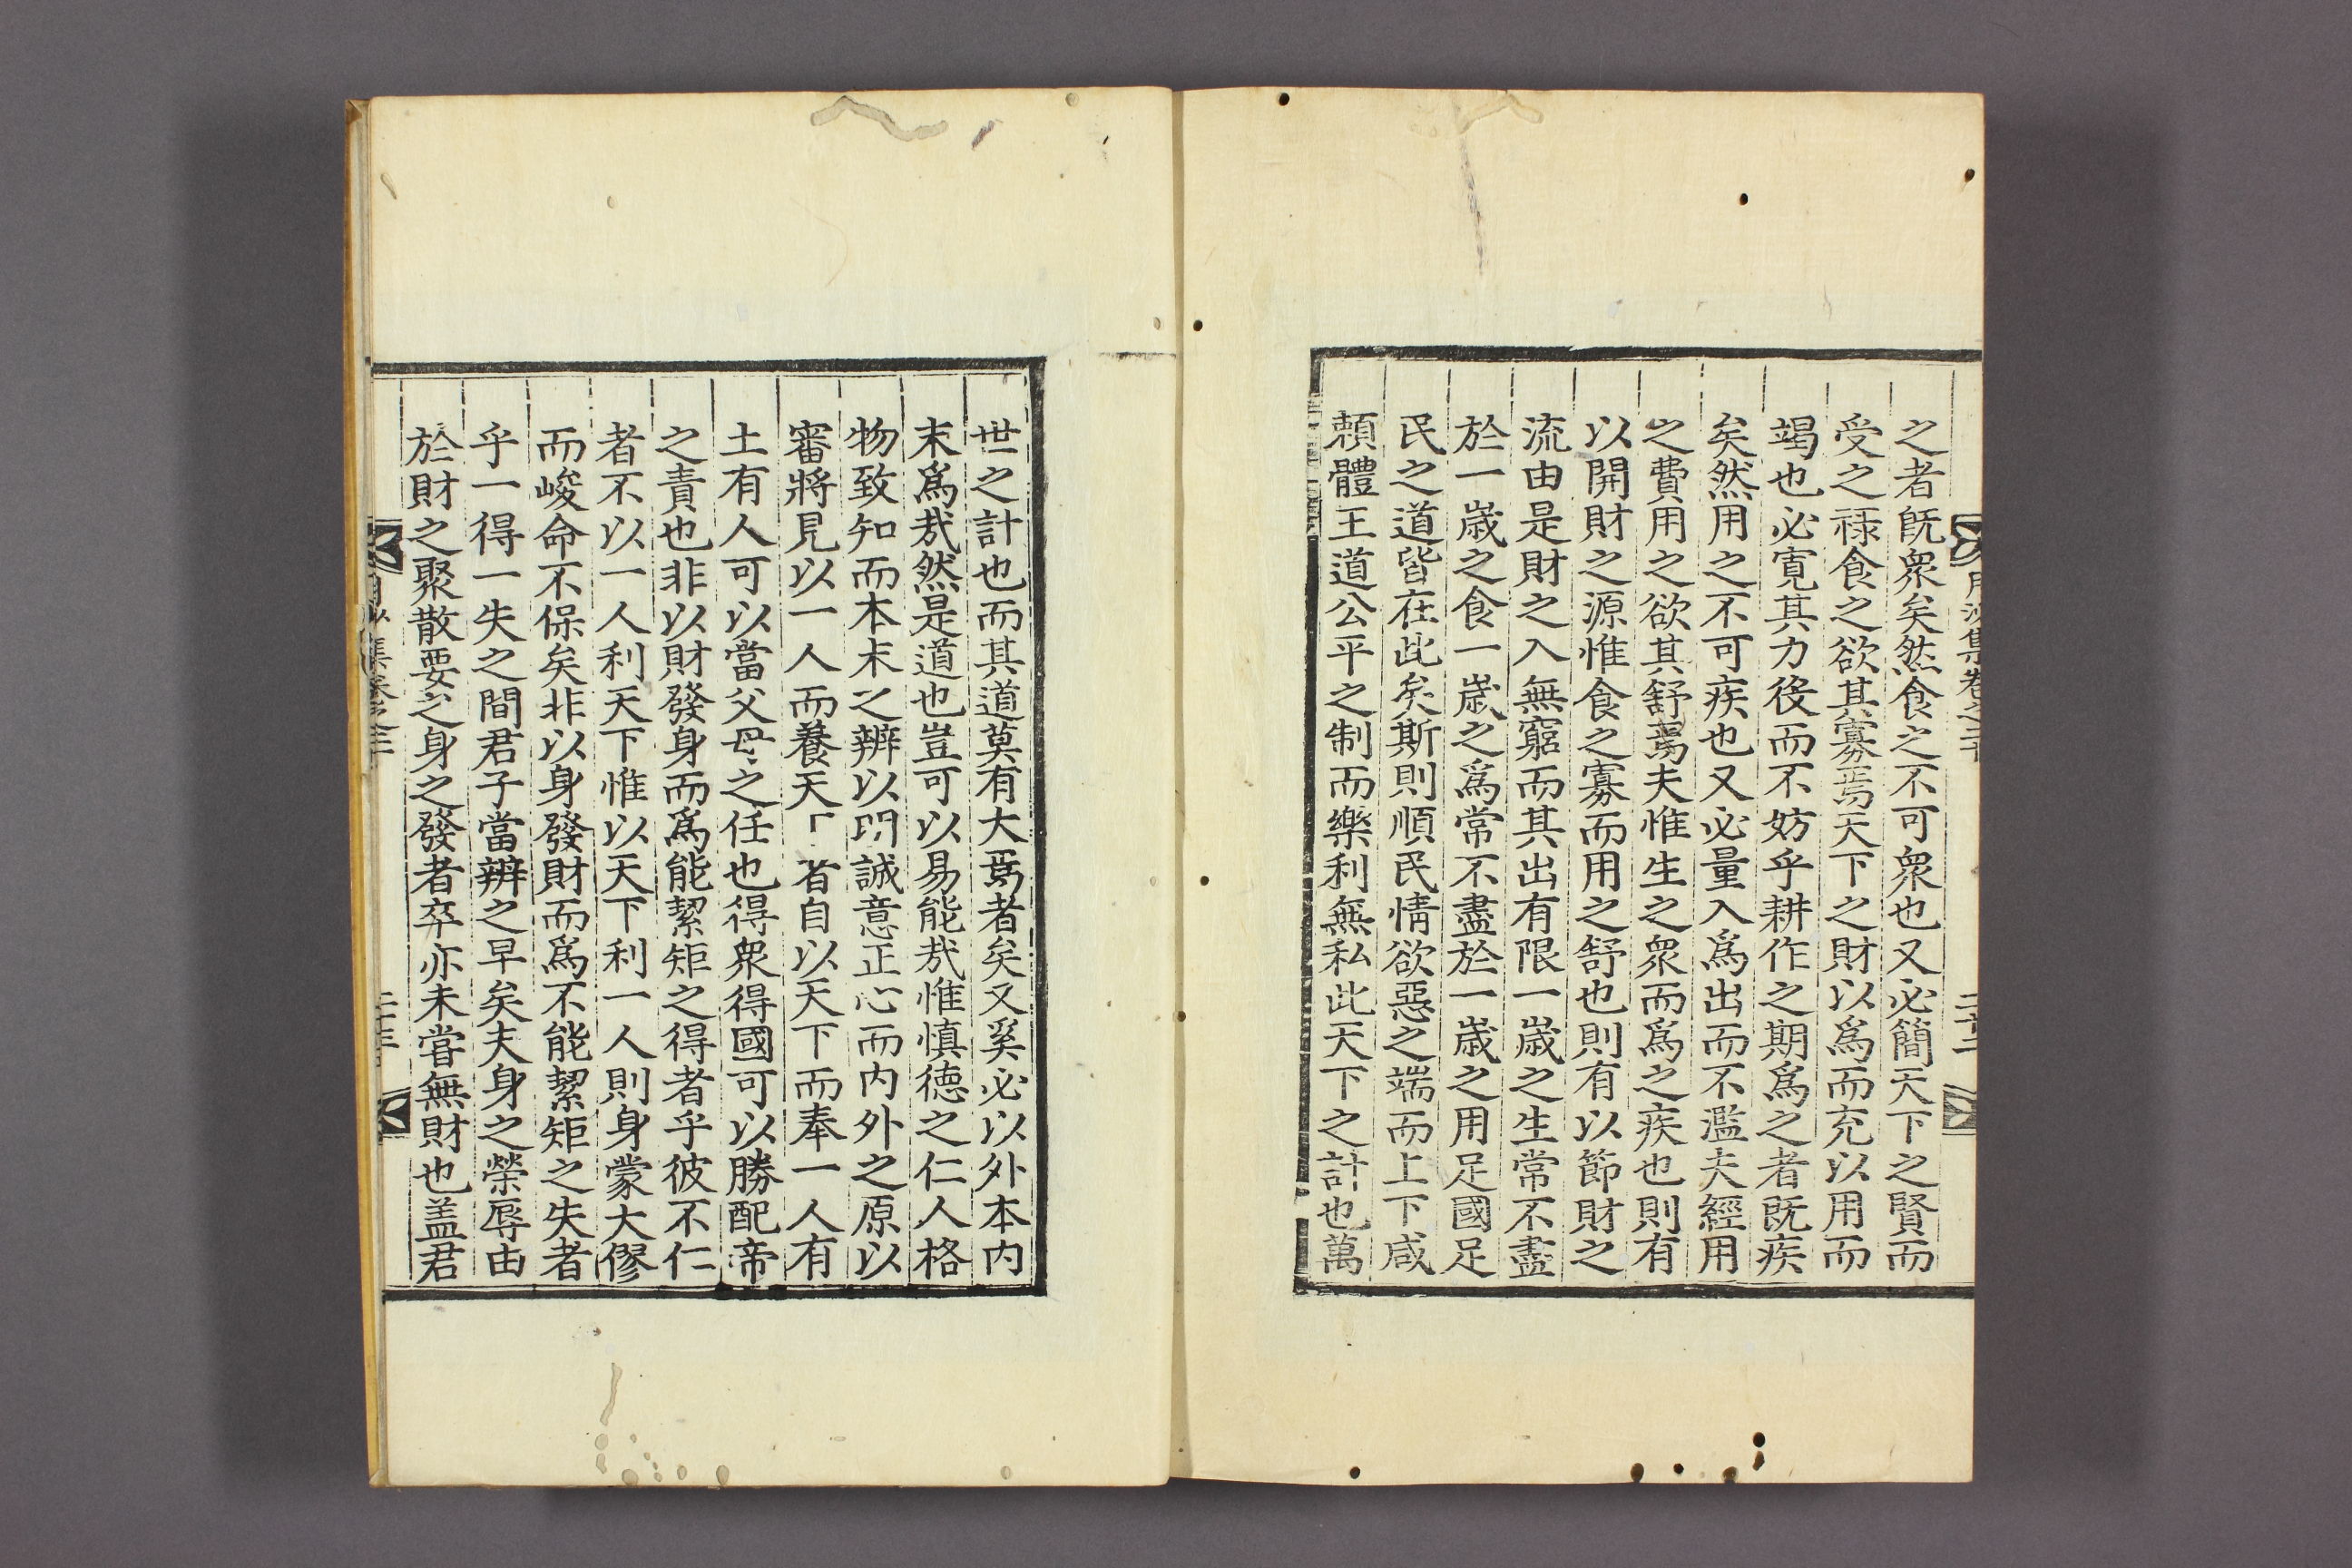 之者旣衆矣然食之不可衆也又必簡天下之賢而
受之祿食之欲其寡焉天下之財以爲而充以用而
竭也必寬其力役而不妨乎耕作之期爲之者旣疾
矣然用之不可疾也又必量入爲出而不濫夫經用
之費用之欲其舒焉夫惟生之衆而爲之疾也則有
以開財之源惟食之寡而用之舒也則有以節財之
流由是財之入無窮而其出有限一歲之生常不盡
於一歲之食一歲之爲常不盡於一歲之用足國足
民之道皆在此矣斯則順民情欲惡之端而上下咸
頼體王道公平之制而樂利無私此天下之計也萬
世之計也而其道莫有大焉者矣又奚必以外本內
末爲哉然是道也豈可以易能哉惟愼德之仁人格
物致知而本末之辨以明誠意正心而內外之原以
審將見以一人而養天 者自以天下而奉一人有
土有人可以當父母之任也得衆得國可以勝配帝
之責也非以財發身而爲能絜矩之得者乎彼不仁
者不以一人利天下惟以天下利一人則身蒙大僇
而峻命不保矣非以身發財而爲不能絜矩之失者
乎一得一失之間君子當辨之早矣夫身之榮辱由
於財之聚散要之身之發者卒亦未嘗無財也盖君
集卷之二